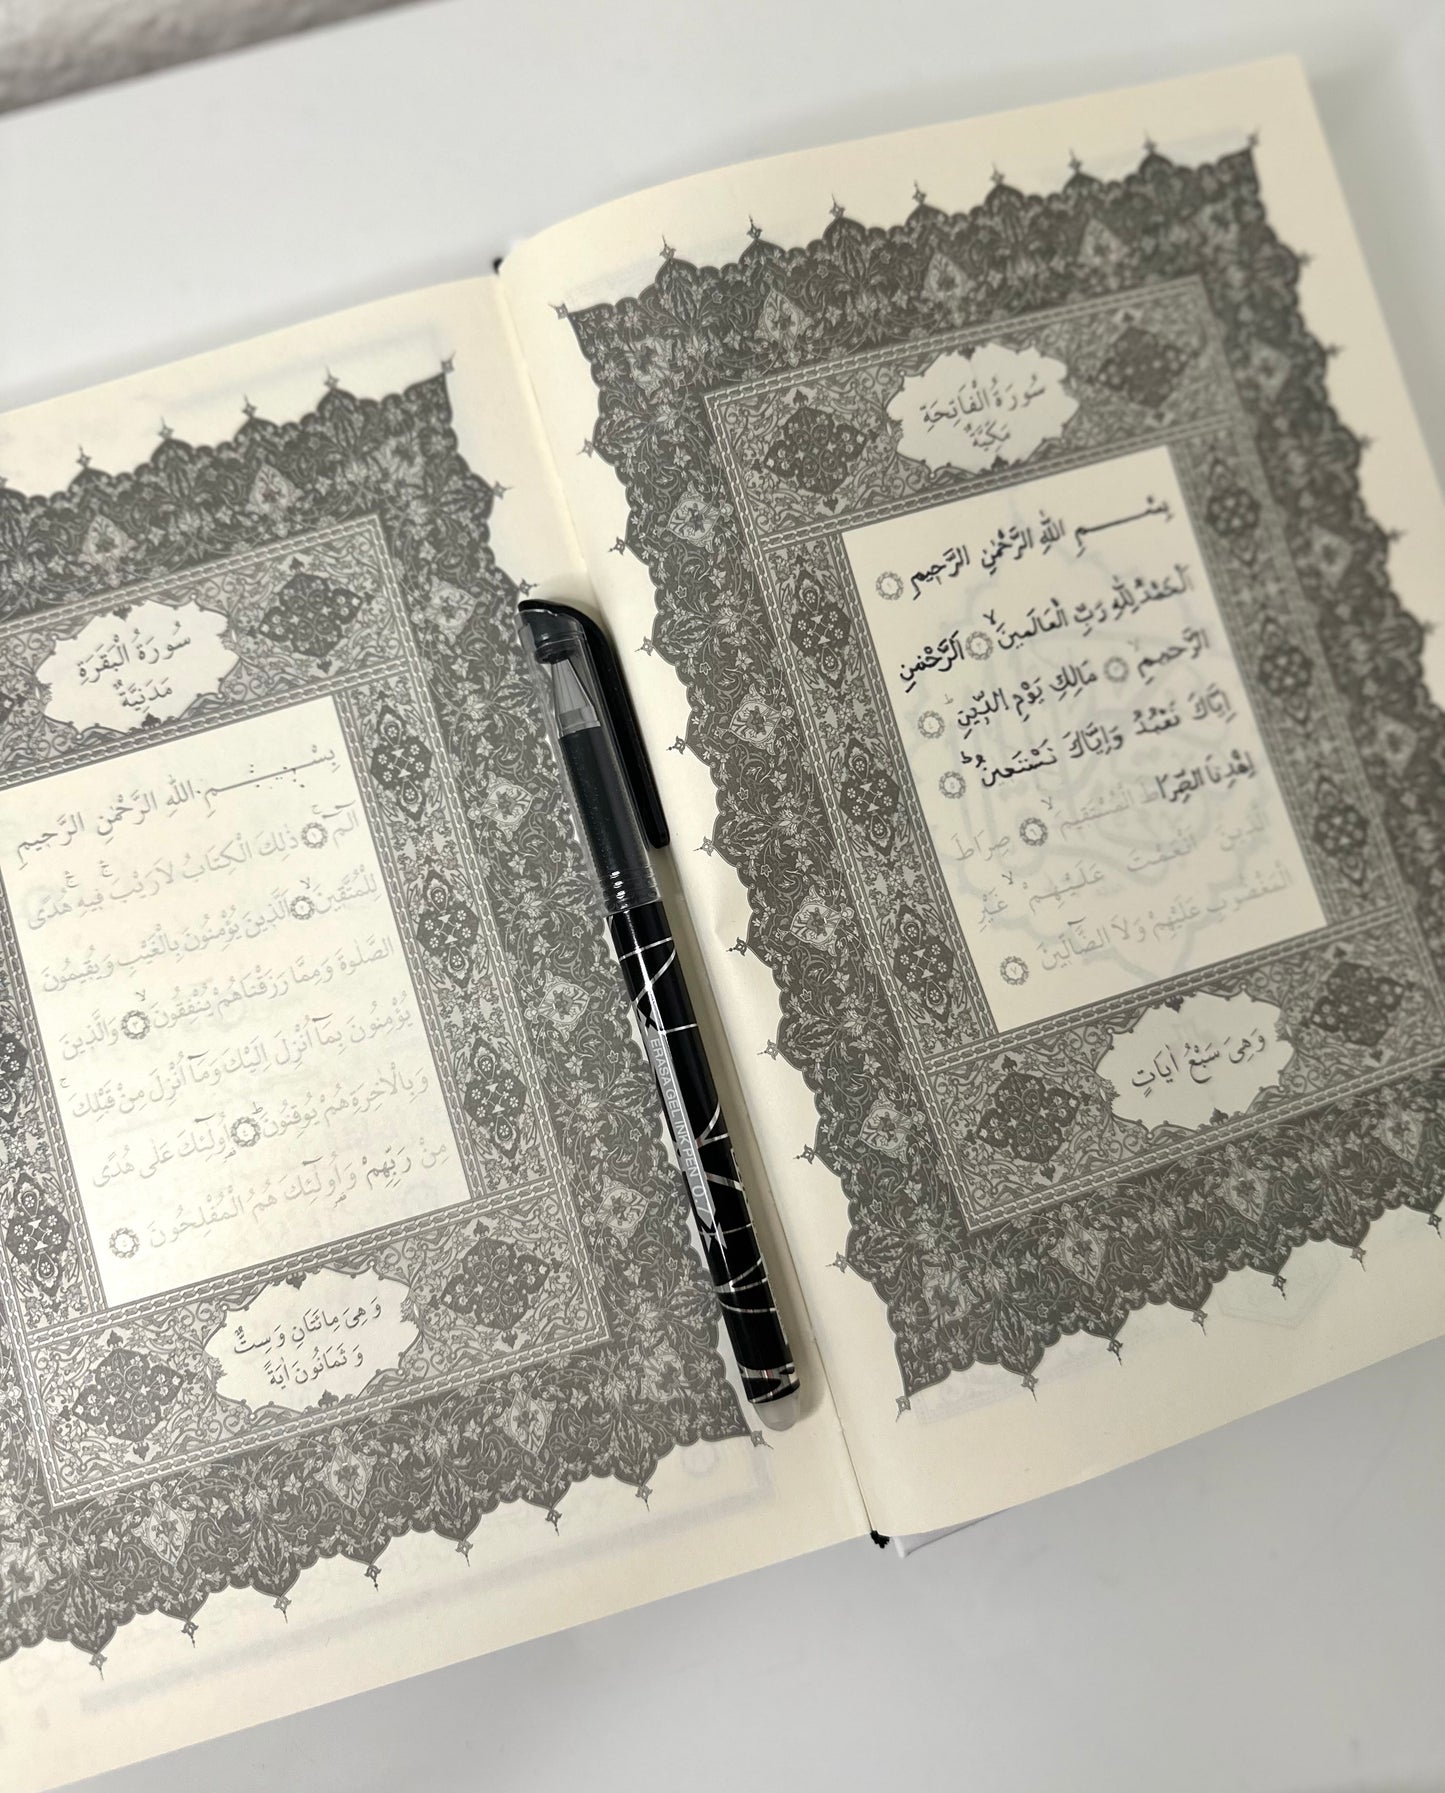 سُورَةُ الْفَاتِحَةِ
مَكِّيَّةٌ
بِسْمِ اللّٰهِ الرَّحْمٰنِ الرَّحِيمِ ﴿١﴾
اَلْحَمْدُ لِلّٰهِ رَبِّ الْعَالَمِينَۙ ﴿٢﴾ اَلرَّحْمٰنِ
الرَّحِيمِۙ ﴿٣﴾ مَالِكِ يَوْمِ الدِّينِۜ ﴿٤﴾
اِيَّاكَ نَعْبُدُ وَاِيَّاكَ نَسْتَعِينُۜ ﴿٥﴾
اِهْدِنَا الصِّرَاطَ الْمُسْتَقِيمَۙ ﴿٦﴾ صِرَاطَ
الَّذِينَ اَنْعَمْتَ عَلَيْهِمْۙ غَيْرِ
الْمَغْضُوبِ عَلَيْهِمْ وَلَا الضَّٓالِّينَ ﴿٧﴾
وَهِىَ سَبْعُ اٰيَاتٍ
سُورَةُ الْبَقَرَةِ
مَدَنِيَّةٌ
بِسْمِ اللّٰهِ الرَّحْمٰنِ الرَّحِيمِ
الٓمٓۚ ﴿١﴾ ذٰلِكَ الْكِتَابُ لَا رَيْبَۚ فِيهِۚ هُدًى
لِلْمُتَّقِينَۙ ﴿٢﴾ اَلَّذِينَ يُؤْمِنُونَ بِالْغَيْبِ وَيُقِيمُونَ
الصَّلٰوةَ وَمِمَّا رَزَقْنَاهُمْ يُنْفِقُونَۙ ﴿٣﴾ وَالَّذِينَ
يُؤْمِنُونَ بِمَٓا اُنْزِلَ اِلَيْكَ وَمَٓا اُنْزِلَ مِنْ قَبْلِكَۚ
وَبِالْاٰخِرَةِ هُمْ يُوقِنُونَۜ ﴿٤﴾ اُو۬لٰٓئِكَ عَلٰى هُدًى
مِنْ رَبِّهِمْ وَاُو۬لٰٓئِكَ هُمُ الْمُفْلِحُونَ ﴿٥﴾
وَهِىَ مِائَتَانِ وَسِتٌّ
وَثَمَانُونَ اٰيَةً
ERASA GEL INK PEN 0.7